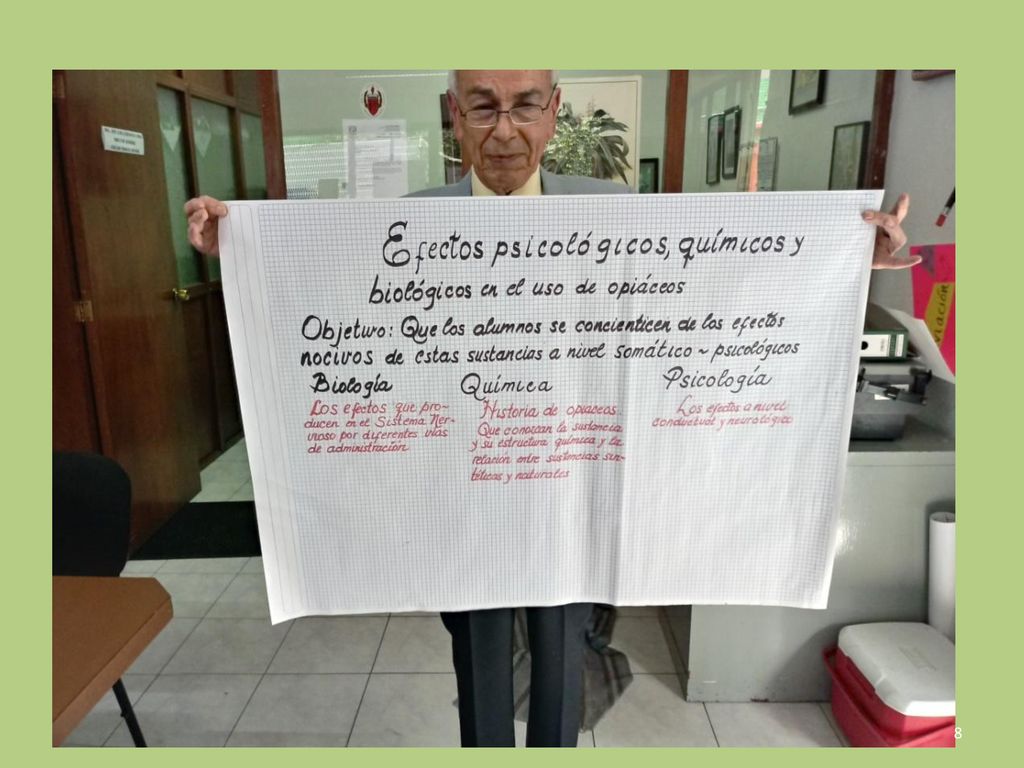 Efectos psicológicos, químicos y
biológicos en el uso de opiáceos
Objetivo: Que los alumnos se concienticen de los efectos
nocivos de estas sustancias a nivel somático ~ psicológicos
Biología
Los efectos que pro-
ducen en el Sistema Ner-
vioso por diferentes vías
de administración
Química
Historia de opiaceos.
Que conozcan la sustancia
y su estructura química y la
relación entre sustancias sin-
téticas y naturales
Psicología
Los efectos a nivel
conductual y neurológico
8